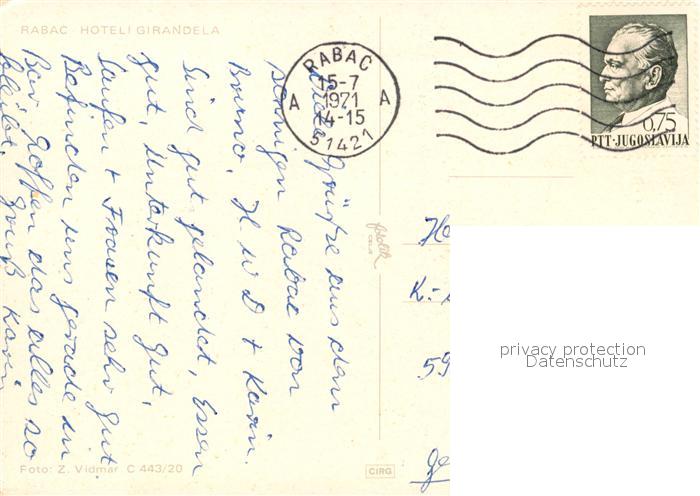 RABAC HOTELI GIRANDELA
RABAC
15-7
1971
14-15
A A
51421
0,75
PTT-JUGOSLAVIJA
Grüße aus dem
sonnigen Rabac von
Bruno, H. W D + Karin.
Sind gut gelandet, Essen
gut, Unterkunft gut,
Saufen + Frauen sehr gut
Befinden uns gerade in
Bar hoffen das alles so
bleibt. Gruß Karin
fotolik
CELJE
He
K.-
59
ge
privacy protection
Datenschutz
Foto: Z. Vidmar C 443/20
CIRG